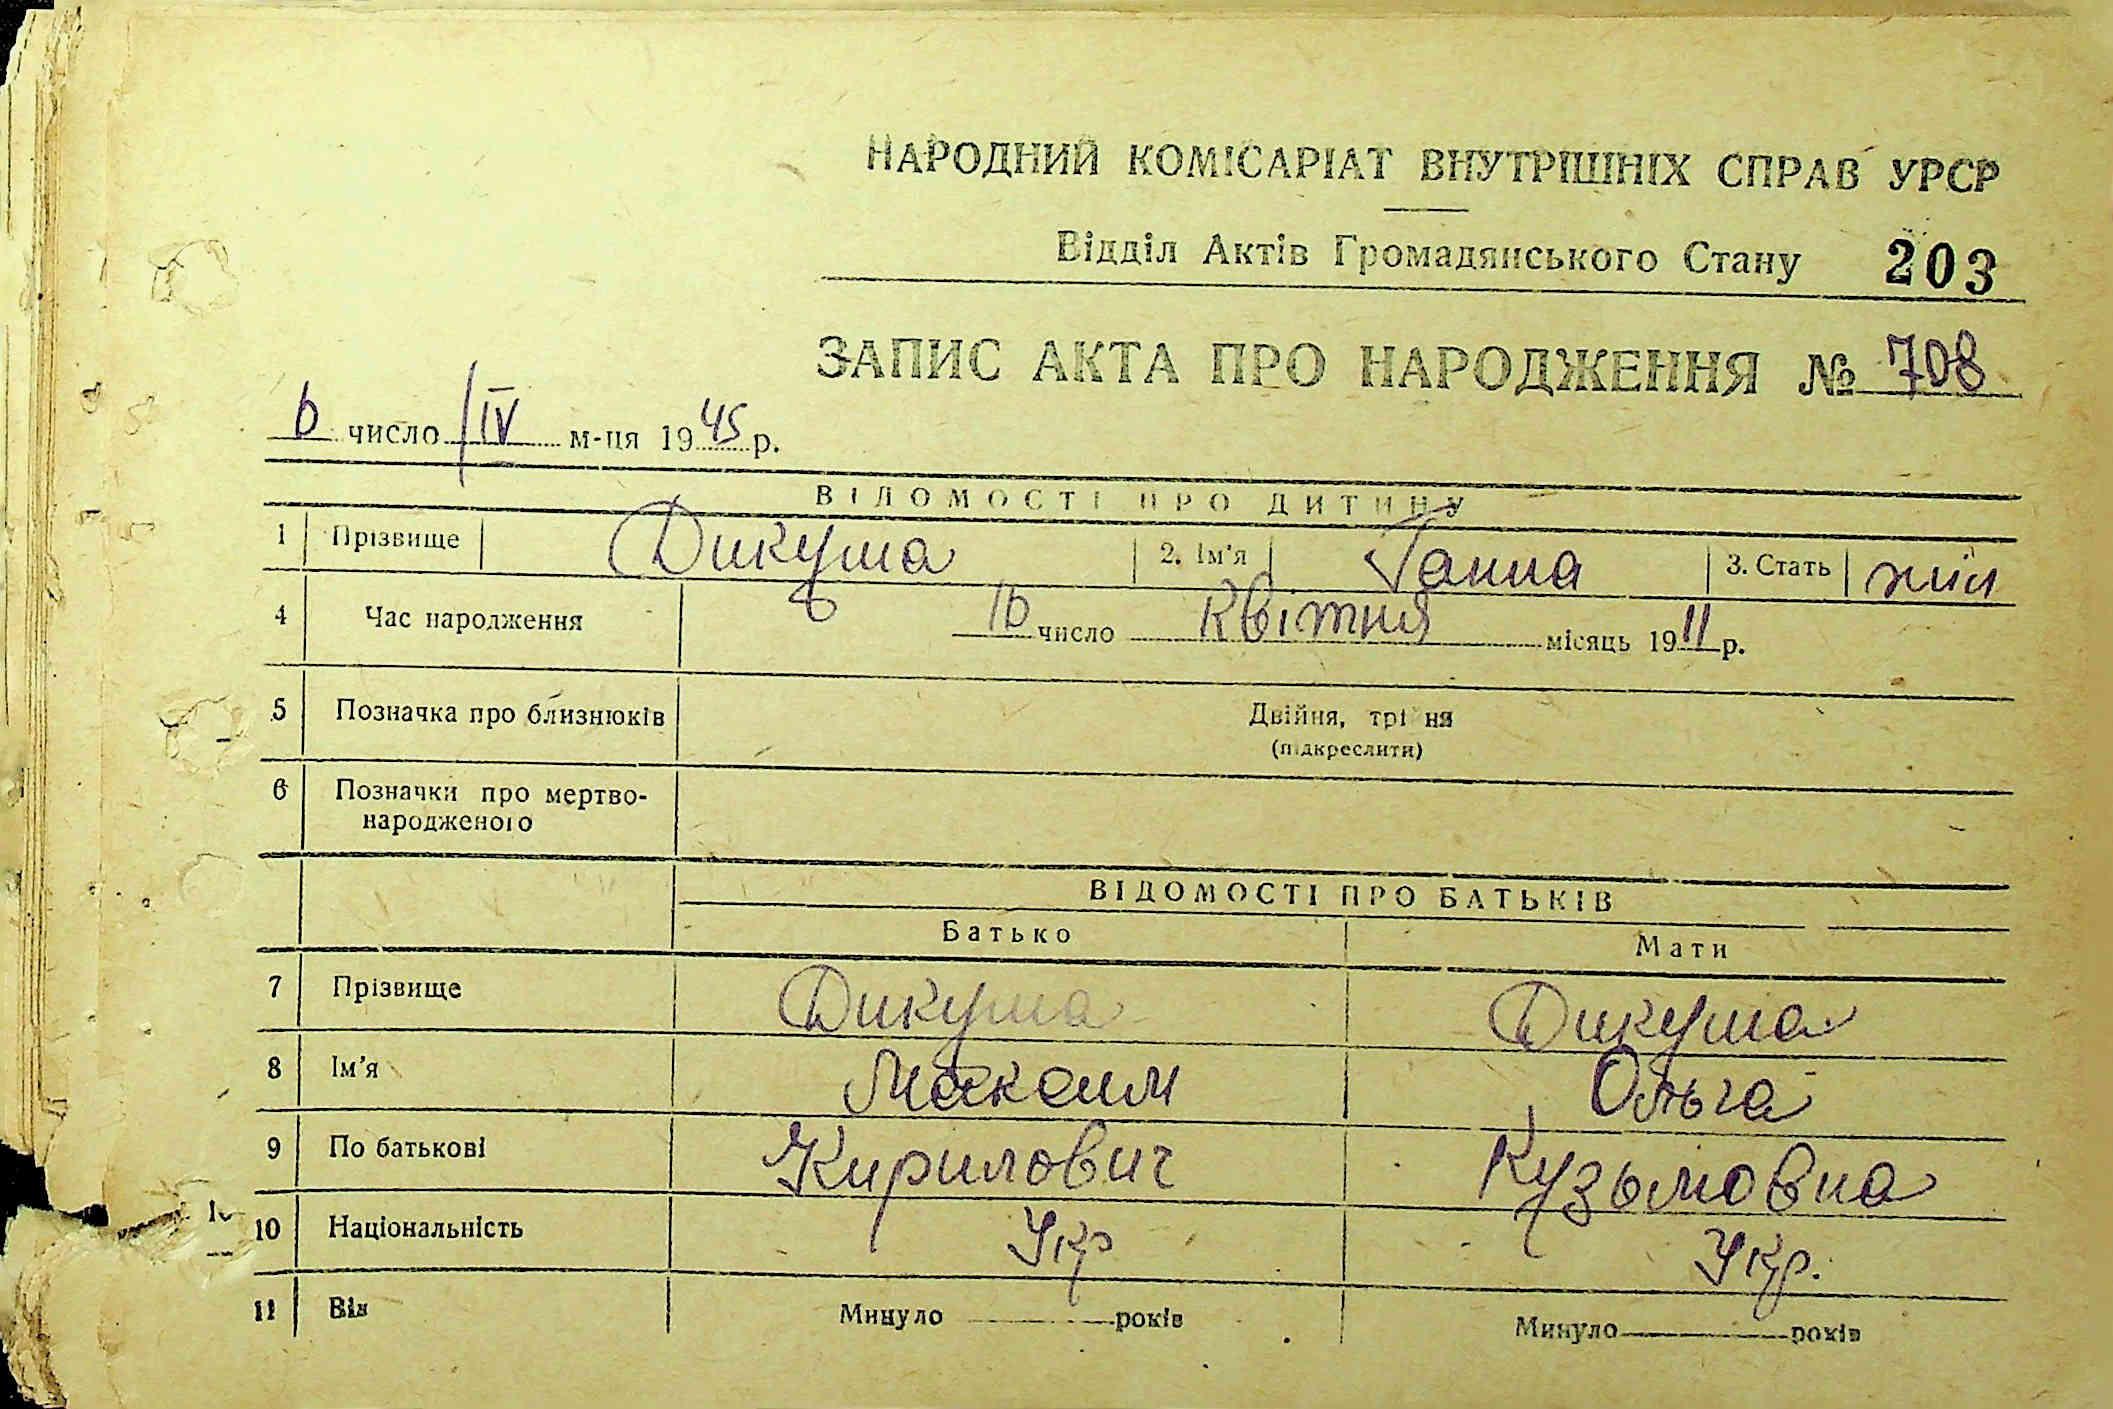 НАРОДНИЙ КОМІСАРІАТ ВНУТРІШНІХ СПРАВ УРСР
Відділ Актів Громадянського Стану 203
ЗАПИС АКТА ПРО НАРОДЖЕННЯ № 708
6 число IV м-ця 1945 р.
ВІДОМОСТІ ПРО ДИТИНУ
1 Прізвище Дикуша 2. Ім'я Ганна 3. Стать жін
4 Час народження 16 число квітня місяць 1911 р.
5 Позначка про близнюків Двійня, трійня
(підкреслити)
6 Позначки про мертво-
народженого
ВІДОМОСТІ ПРО БАТЬКІВ
Батько Мати
7 Прізвище Дикуша Дикуша
8 Ім'я Максим Ольга
9 По батькові Кирилович Кузьмовна
10 Національність Укр Укр.
11 Вік Минуло років Минуло років